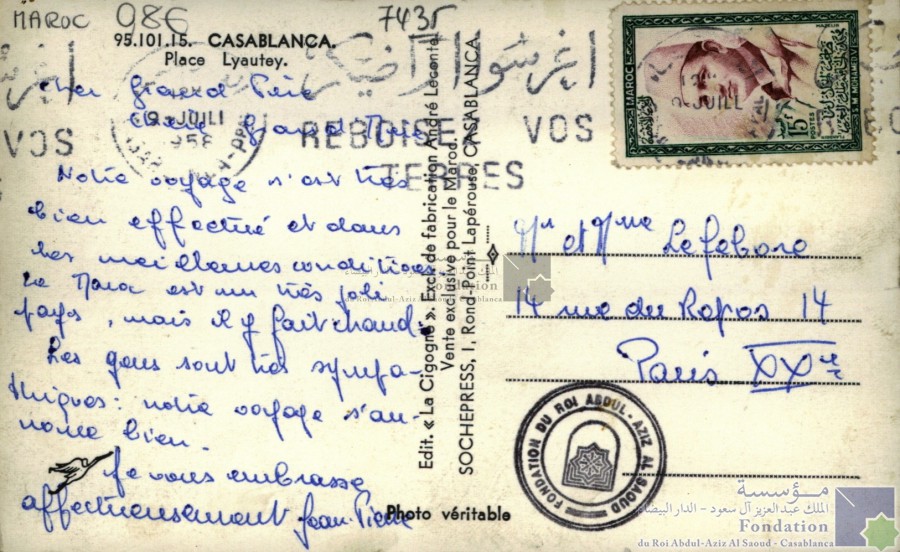 MAROC 986
7435
95.101.15. CASABLANCA.
Place Lyautey.
Cher Grand Père
Chère Grand Mère
Notre voyage s'est très
bien effectué et dans
les meilleures conditions
le Maroc est un très joli
pays, mais il y fait chaud.
Les gens sont très sympa-
thiques: notre voyage s'an-
nonce bien.
Je vous embrasse
affectueusement Jean Pierre
REBOISEZ VOS
TERRES
VOS
JUILL
Edit. « La Cigogne ». Excl. de fabrication André Leconte
Vente exclusive pour le Maroc.
SOCHEPRESS, 1, Rond-Point Lapérouse, CASABLANCA
Photo véritable
MAROC
15F
POSTES
S.M. MOHAMED V
Mr et Mme Lefebvre
14 rue du Repos 14
Paris XXe
FONDATION DU ROI ABDUL-AZIZ AL SAOUD
الملك عبد العزيز آل سعود - الدار البيضاء
Fondation
du Roi Abdul-Aziz Al Saoud - Casablanca
مؤسسة
الملك عبد العزيز آل سعود - الدار البيضاء
Fondation
du Roi Abdul-Aziz Al Saoud - Casablanca